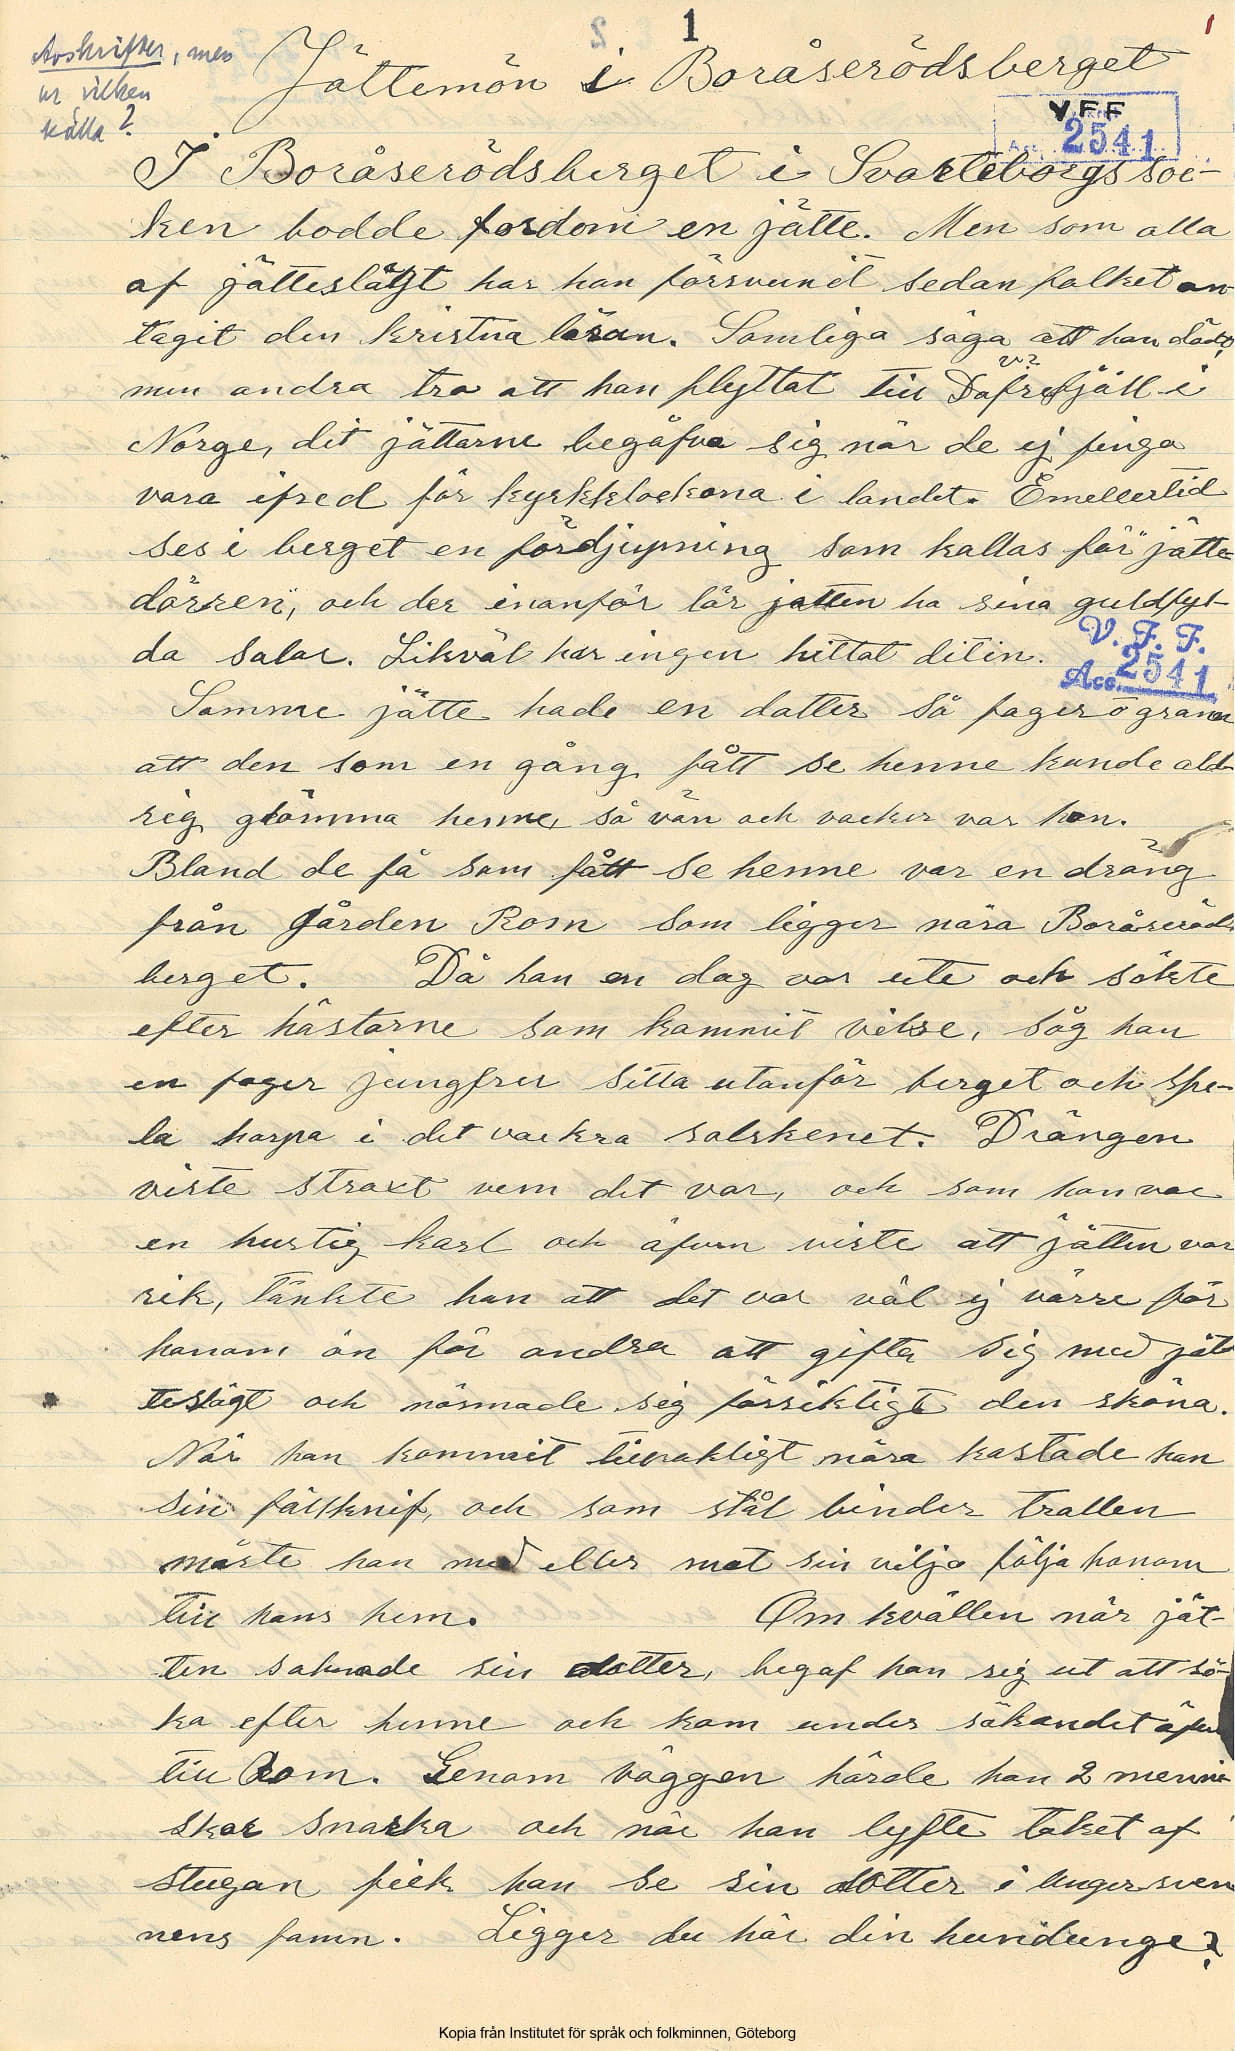 1
1
Avskrifter, men
ur vilken
källa?
Jättemön i Boråserödsberget
V.F.F.
2541
I Boråserödsberget i Svarteborgs soc-
ken bodde fordom en jätte. Men som alla
af jätteslägt har han försvunnit sedan folket an-
tagit den kristna läran. Somliga säga att han dödt,
men andra tro att han flyttat till Dofrefjäll i
v?
Norge, dit jättarne begåfvo sig när de ej finga
vara ifred för kyrkklockona i landet. Emellertid
ses i berget en fördjupning som kallas för "jätte-
dörren", och der inanför lär jätten ha sina guldfyl-
da salar. Likväl har ingen hittat ditin.
V. F. F.
Acc. 2541
Samme jätte hade en datter så fager o grann
att den som en gång fått se henne kunde ald-
rig glömma henne, så vän och vacker var hon.
Bland de få som fått se henne var en dräng
från gården Rom som ligger nära Boråseröds-
berget. Då han en dag var ute och sökte
efter hästarne som kommit vilse, såg han
en fager jungfru sitta utanför berget och spe-
la harpa i det vackra solskenet. Drängen
viste straxt vem det var, och som han var
en hurtig karl och äfven viste att jätten var
rik, tänkte han att det var väl ej värre för
honom än för andra att gifta sig med jät-
teslägt och närmade sig försiktigt den sköna.
När han kommit tillräkligt nära kastade han
sin fällknif, och som stål binder trollen
måste hon med eller mot sin vilja följa honom
till hans hem. Om kvällen när jät-
ten saknade sin dotter, begaf han sig ut att sö-
ka efter henne och kom under sökandet äfven
till Rom. Genom väggen hörde han 2 menni-
skor snarka och när han lyfte taket af
stugan fick han se sin dotter i ungersven-
nens famn. Ligger du här din hundunge?
Kopia från Institutet för språk och folkminnen, Göteborg